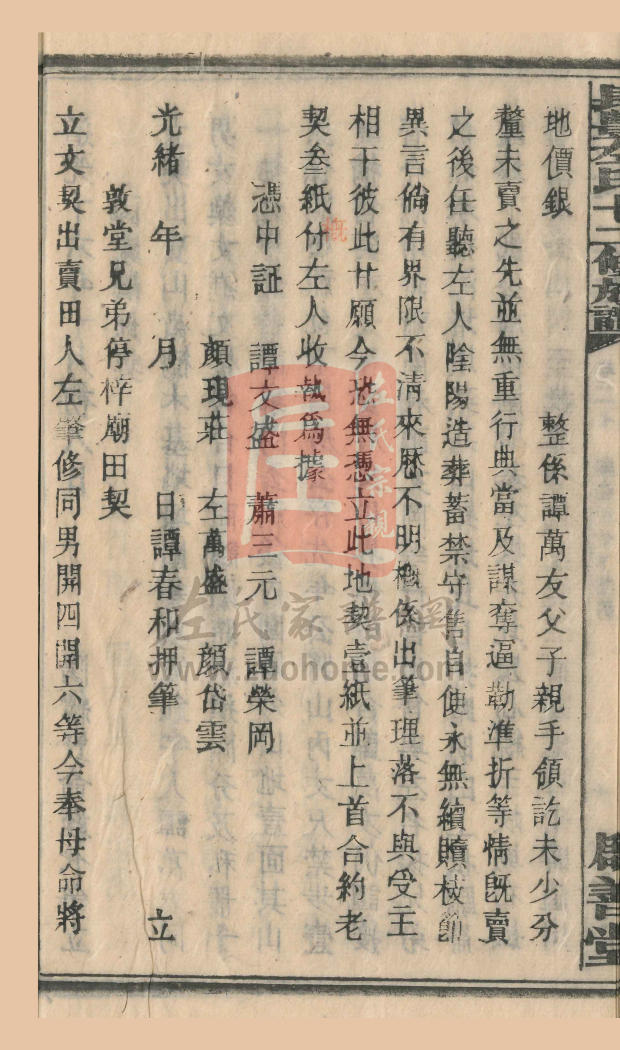 地價銀　整係譚萬友父子親手領訖未少分
釐未賣之先並無重行典當及謀奪逼勒準折等情旣賣
之後任聽左人陰陽造葬蓄禁守售自便永無續贖枝節
異言倘有界限不清來歷不明槪係出筆理落不與受主
相干彼此甘願今恐無憑立此地契壹紙並上首合約老
契叄紙付左人收執爲據
憑中証　譚文盛　蕭三元　譚榮岡
顏現莊　左萬盛　顏岱雲
光緒　年　月　日譚春和押筆　立
敦堂兄弟停梓廟田契
立文契出賣田人左肇修同男開四開六等今奉母命將
左氏宗親
左氏家譜網